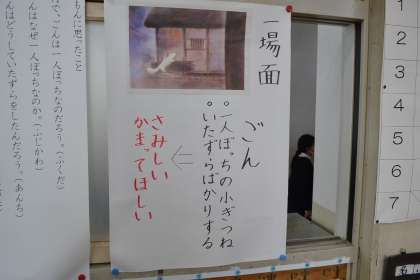 一場面
ごん
。一人ぼっちの小ぎつね
。いたずらばかりする
さみしい
かまってほしい
もんに思ったこと
で、ごんは一人ぼっちなのだろう。(ふくだ)
んはなぜ一人ぼっちなのか。(ふじかわ)
んはどうしていたずらをしたんだろう。(あんち)
1
2
3
4
5
6
7